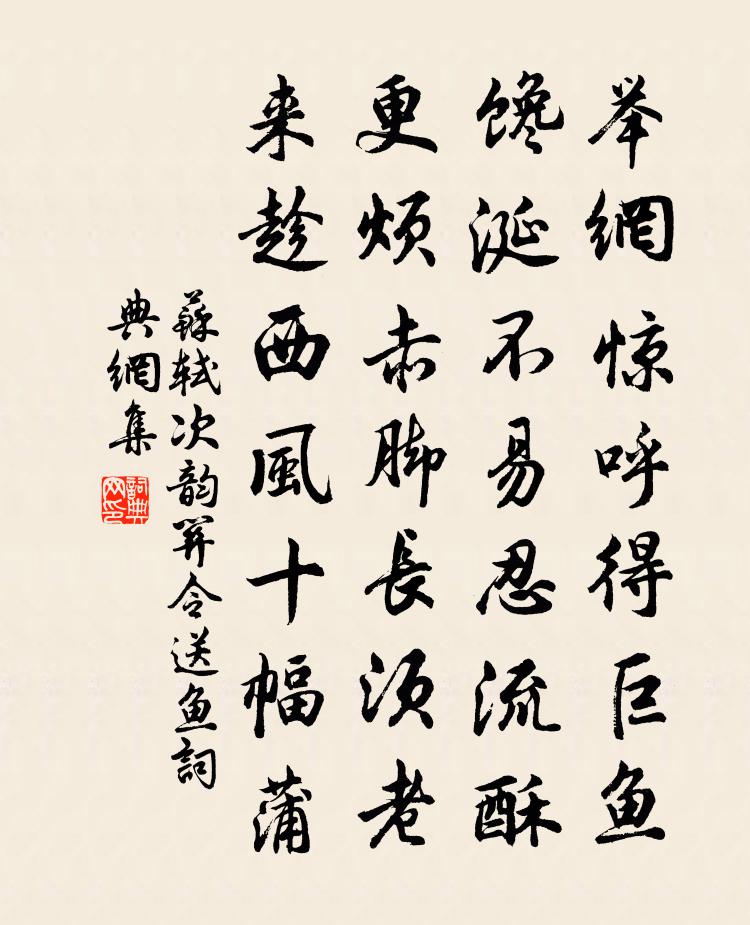 举網惊呼得巨鱼
馋涎不易忍流酥
更烦赤脚長须老
来趁西風十幅蒲
蘇軾次韵関令送鱼詞
典網集
詞典网印